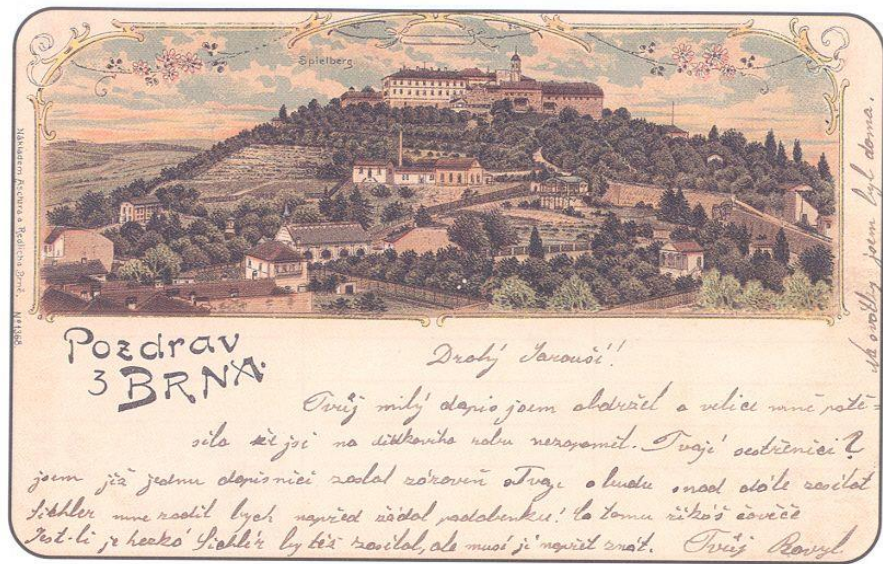 Spielberg
Nákladem Aschera a Redlicha Brně. Nº 1368
Pozdrav
z BRNA.
Drahý Jarouši!
Tvůj milý dopis jsem obdržel a velice mně potě=
šilo že jsi na nezapoměl. Tvojí sestřenici?
jsem již jednu dopisnici zaslal zároveň s Tvojí a budu snad dále zasílat
Sichler mne radil bych napřed žádal podobenku! Co tomu říkáš člověče
Jest-li je hezká Sichler by též zasílal, ale musí ji napřed znát. Tvůj
Na svátky jsem byl doma.